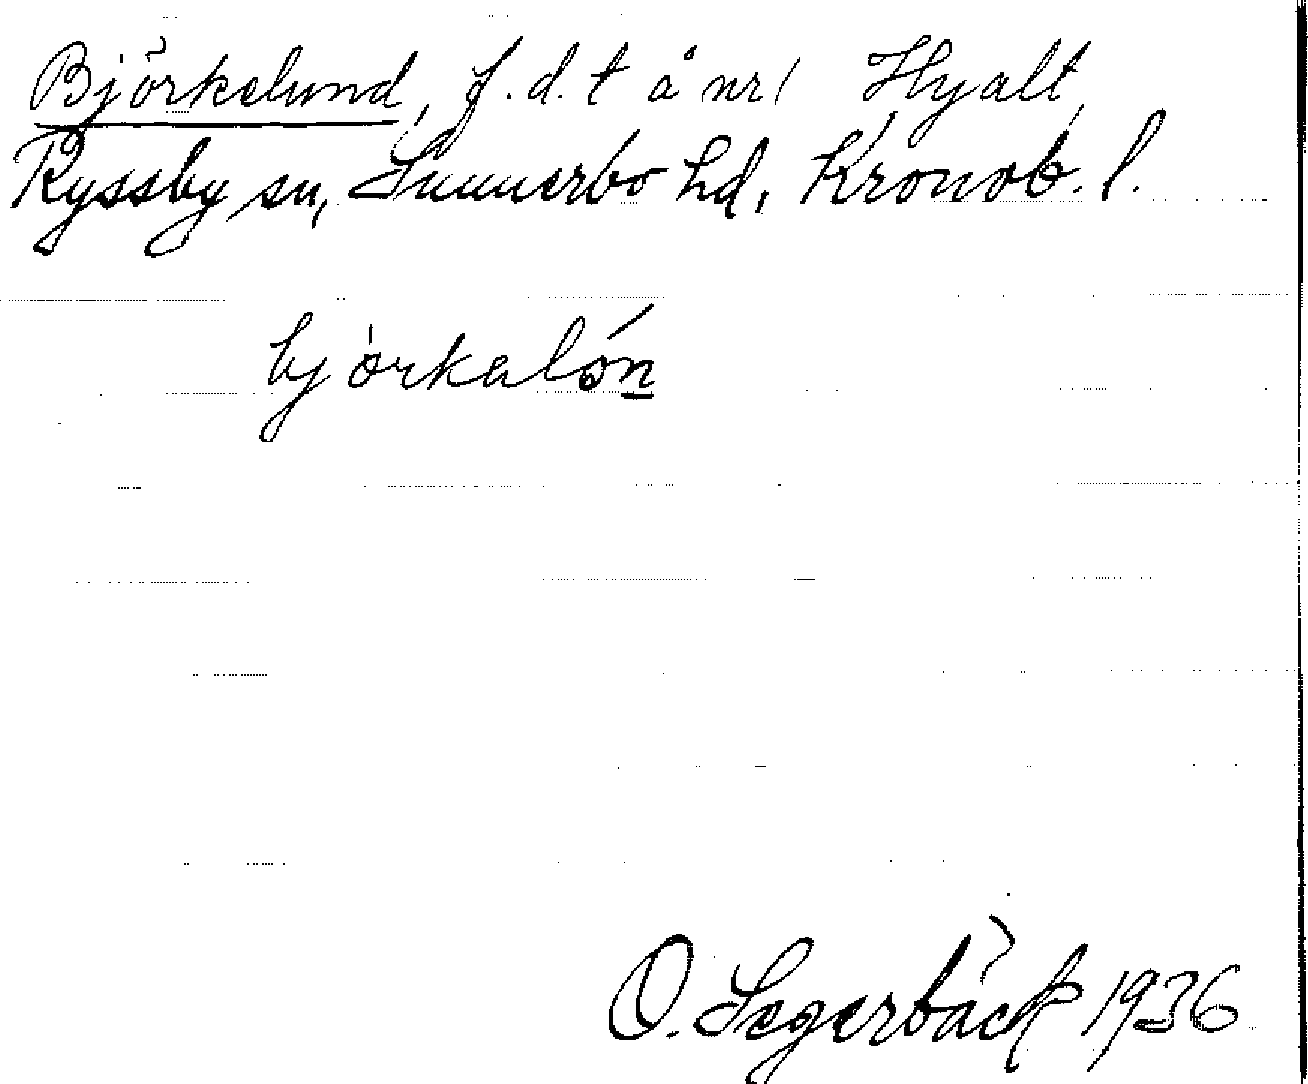 Björkelund, f.d.t å nr 1 Hyalt,
Ryssby sn, Sunnerbo hd, Kronob. l.
björkalón
O. Segerbäck 1936